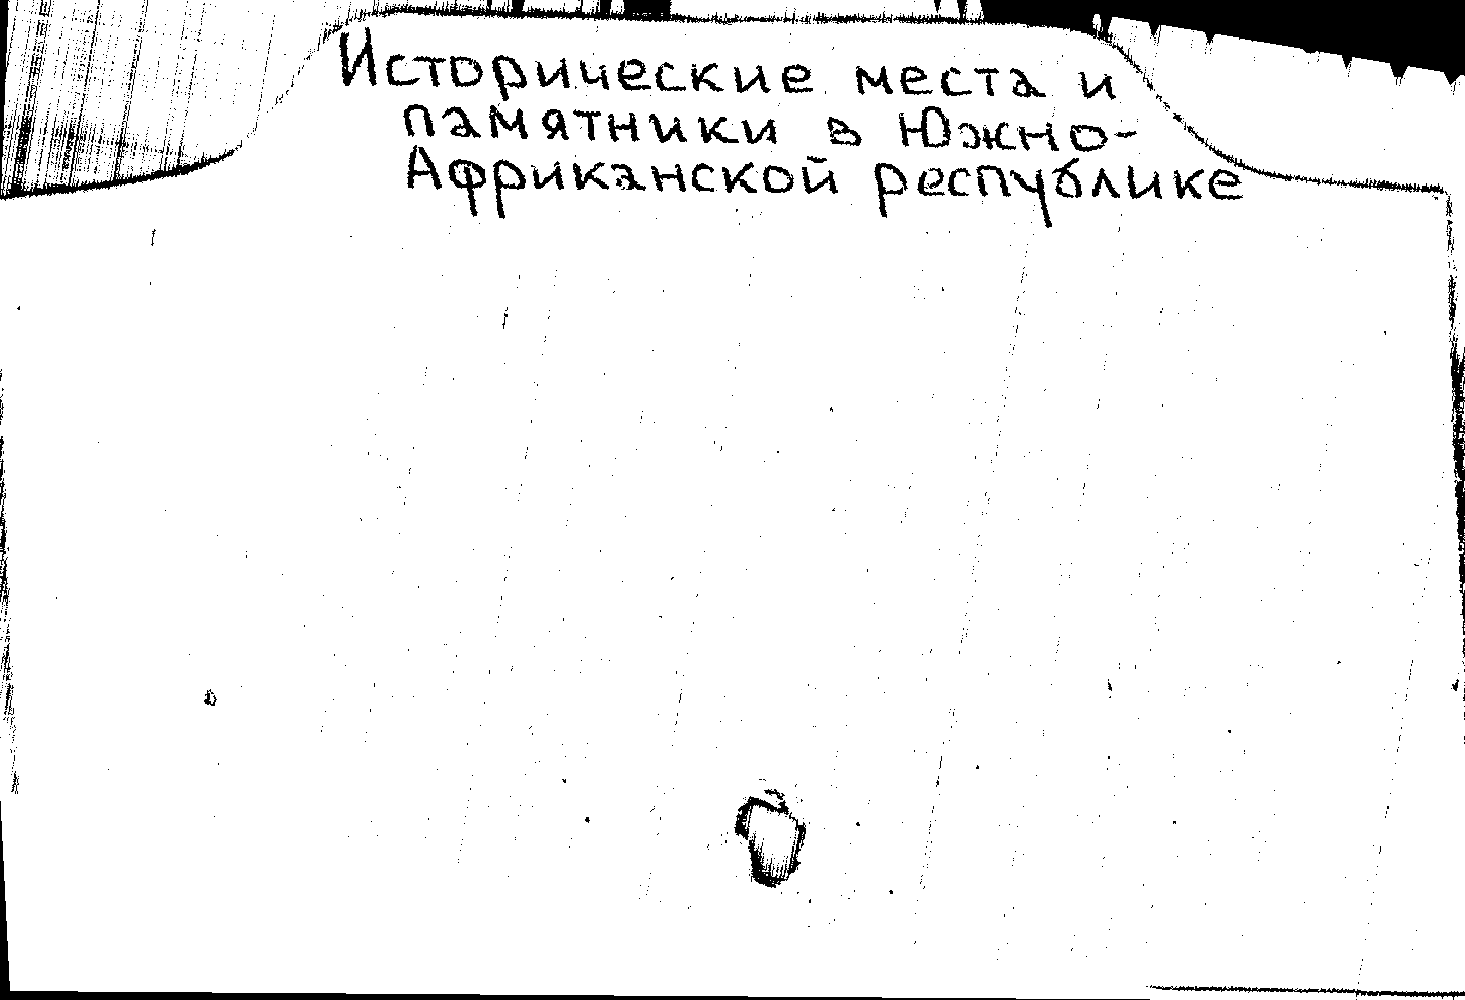 Исторические места и
памятники в Южно-
Африканской республике